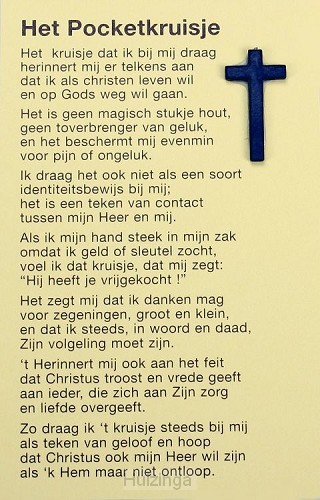 Het Pocketkruisje
Het kruisje dat ik bij mij draag
herinnert mij er telkens aan
dat ik als christen leven wil
en op Gods weg wil gaan.
Het is geen magisch stukje hout,
geen toverbrenger van geluk,
en het beschermt mij evenmin
voor pijn of ongeluk.
Ik draag het ook niet als een soort
identiteitsbewijs bij mij;
het is een teken van contact
tussen mijn Heer en mij.
Als ik mijn hand steek in mijn zak
omdat ik geld of sleutel zocht,
voel ik dat kruisje, dat mij zegt:
“Hij heeft je vrijgekocht !”
Het zegt mij dat ik danken mag
voor zegeningen, groot en klein,
en dat ik steeds, in woord en daad,
Zijn volgeling moet zijn.
‘t Herinnert mij ook aan het feit
dat Christus troost en vrede geeft
aan ieder, die zich aan Zijn zorg
en liefde overgeeft.
Zo draag ik ‘t kruisje steeds bij mij
als teken van geloof en hoop
dat Christus ook mijn Heer wil zijn
als ‘k Hem maar niet ontloop.
Huizinga